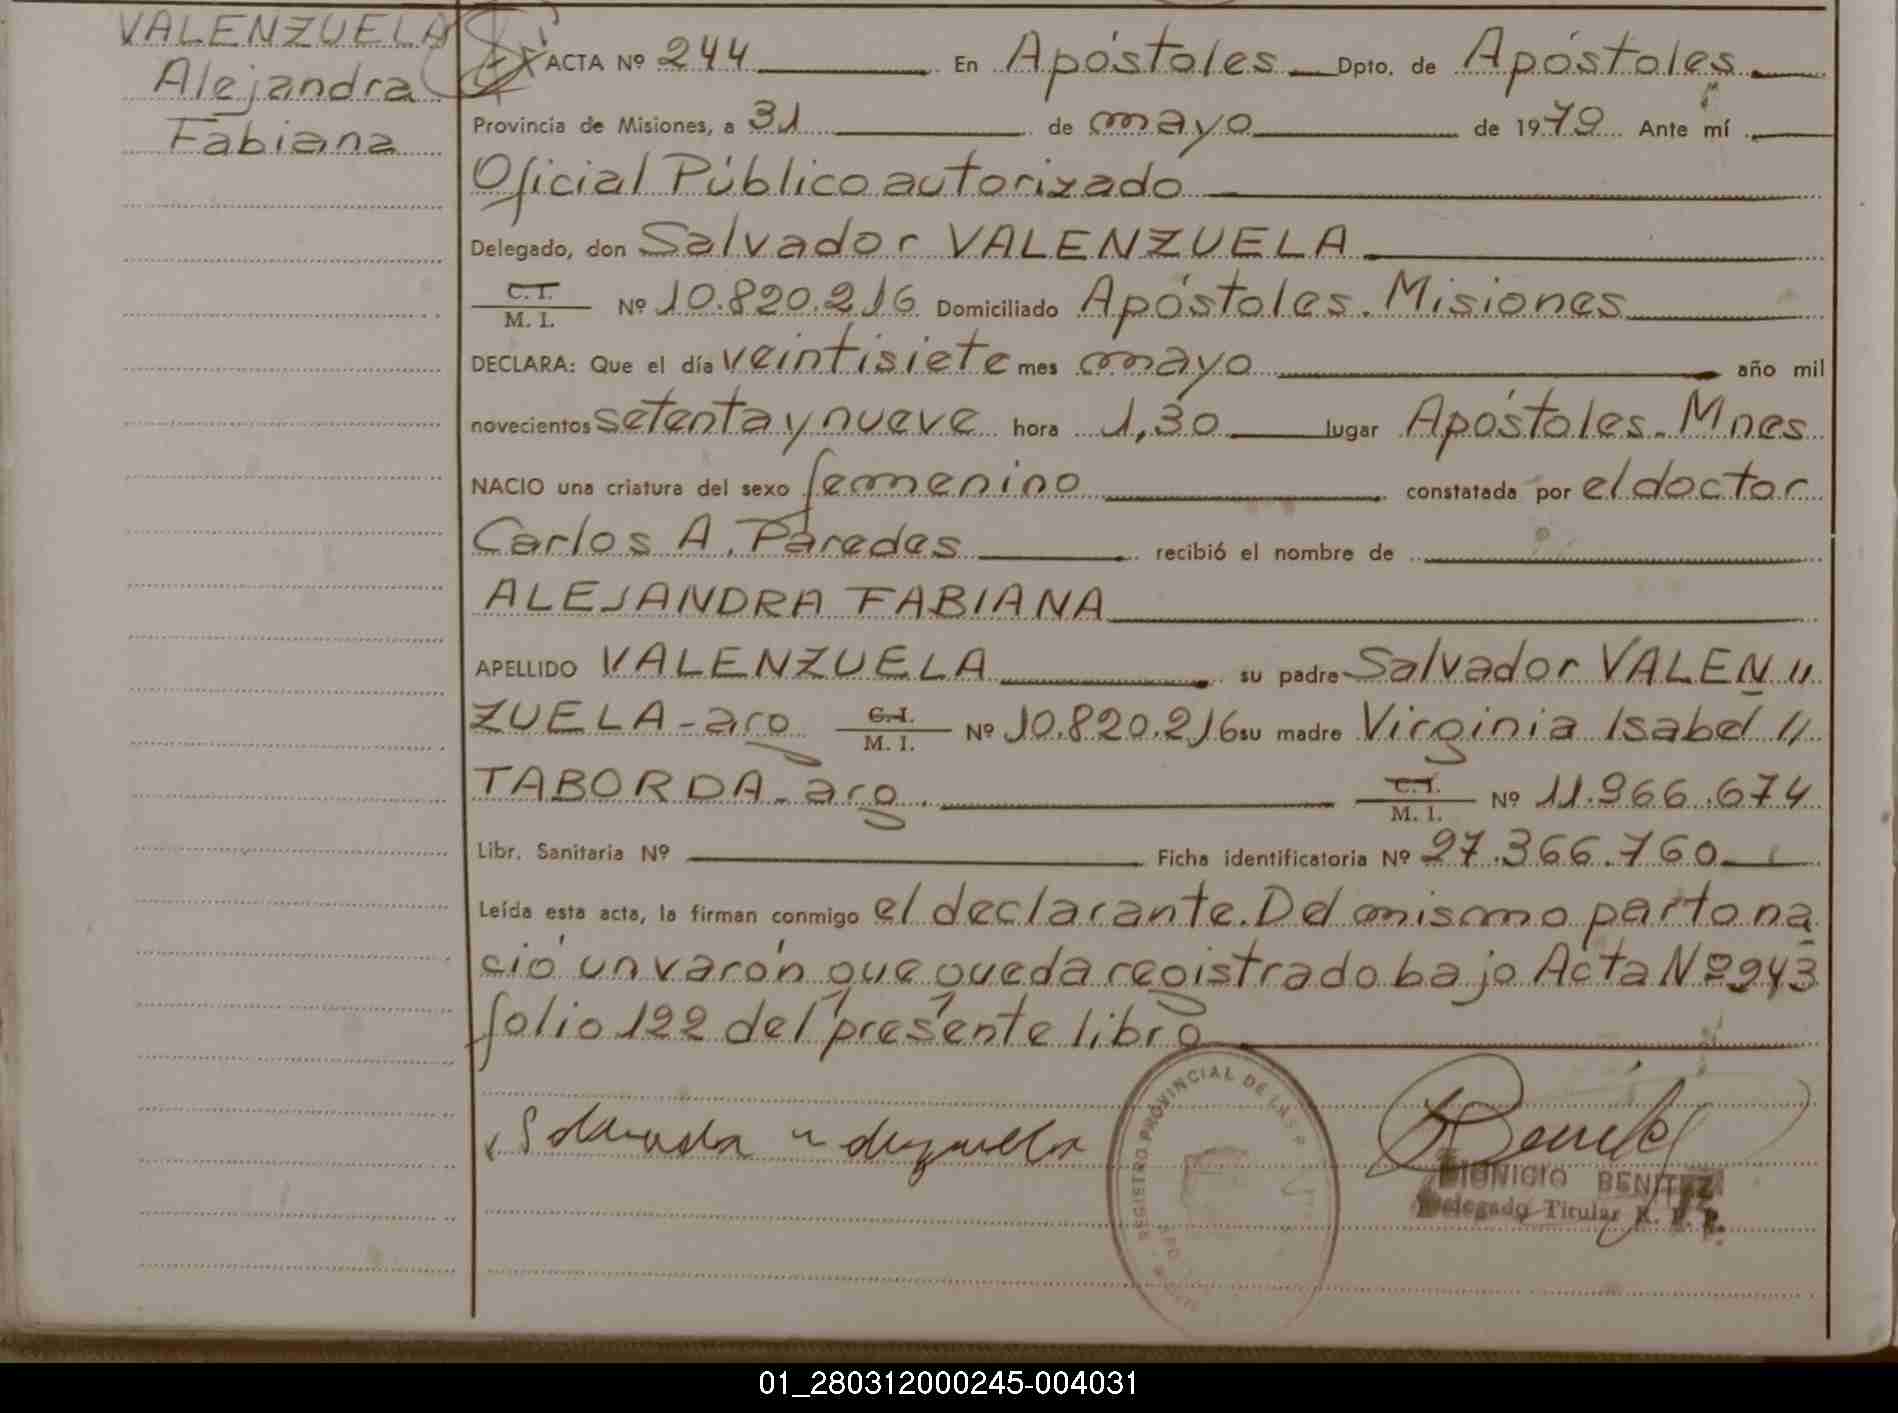 VALENZUELA
Alejandra
Fabiana
ACTA Nº 244 En Apóstoles Dpto. de Apóstoles
Provincia de Misiones, a 31 de mayo de 1979 Ante mí
Oficial Público autorizado
Delegado, don Salvador VALENZUELA
C.I. M. I. Nº 10.820.216 Domiciliado Apóstoles. Misiones
DECLARA: Que el día veintisiete mes mayo año mil
novecientos setenta y nueve hora 1,30 lugar Apóstoles. Mnes
NACIO una criatura del sexo femenino constatada por el doctor
Carlos A. Paredes recibió el nombre de
ALEJANDRA FABIANA
APELLIDO VALENZUELA su padre Salvador VALEN //
ZUELA - arg C.I. M. I. Nº 10.820.216 su madre Virginia Isabel //
TABORDA - arg. C.I. M. I. Nº 11.966.674
Libr. Sanitaria Nº Ficha identificatoria Nº 27.366.760
Leída esta acta, la firman conmigo el declarante. Del mismo parto na
ció un varón que queda registrado bajo Acta Nº 243
folio 122 del presente libro
REGISTRO PROVINCIAL DE LAS P
DIONICIO BENITEZ
Delegado Titular R. P. P.
01_280312000245-004031